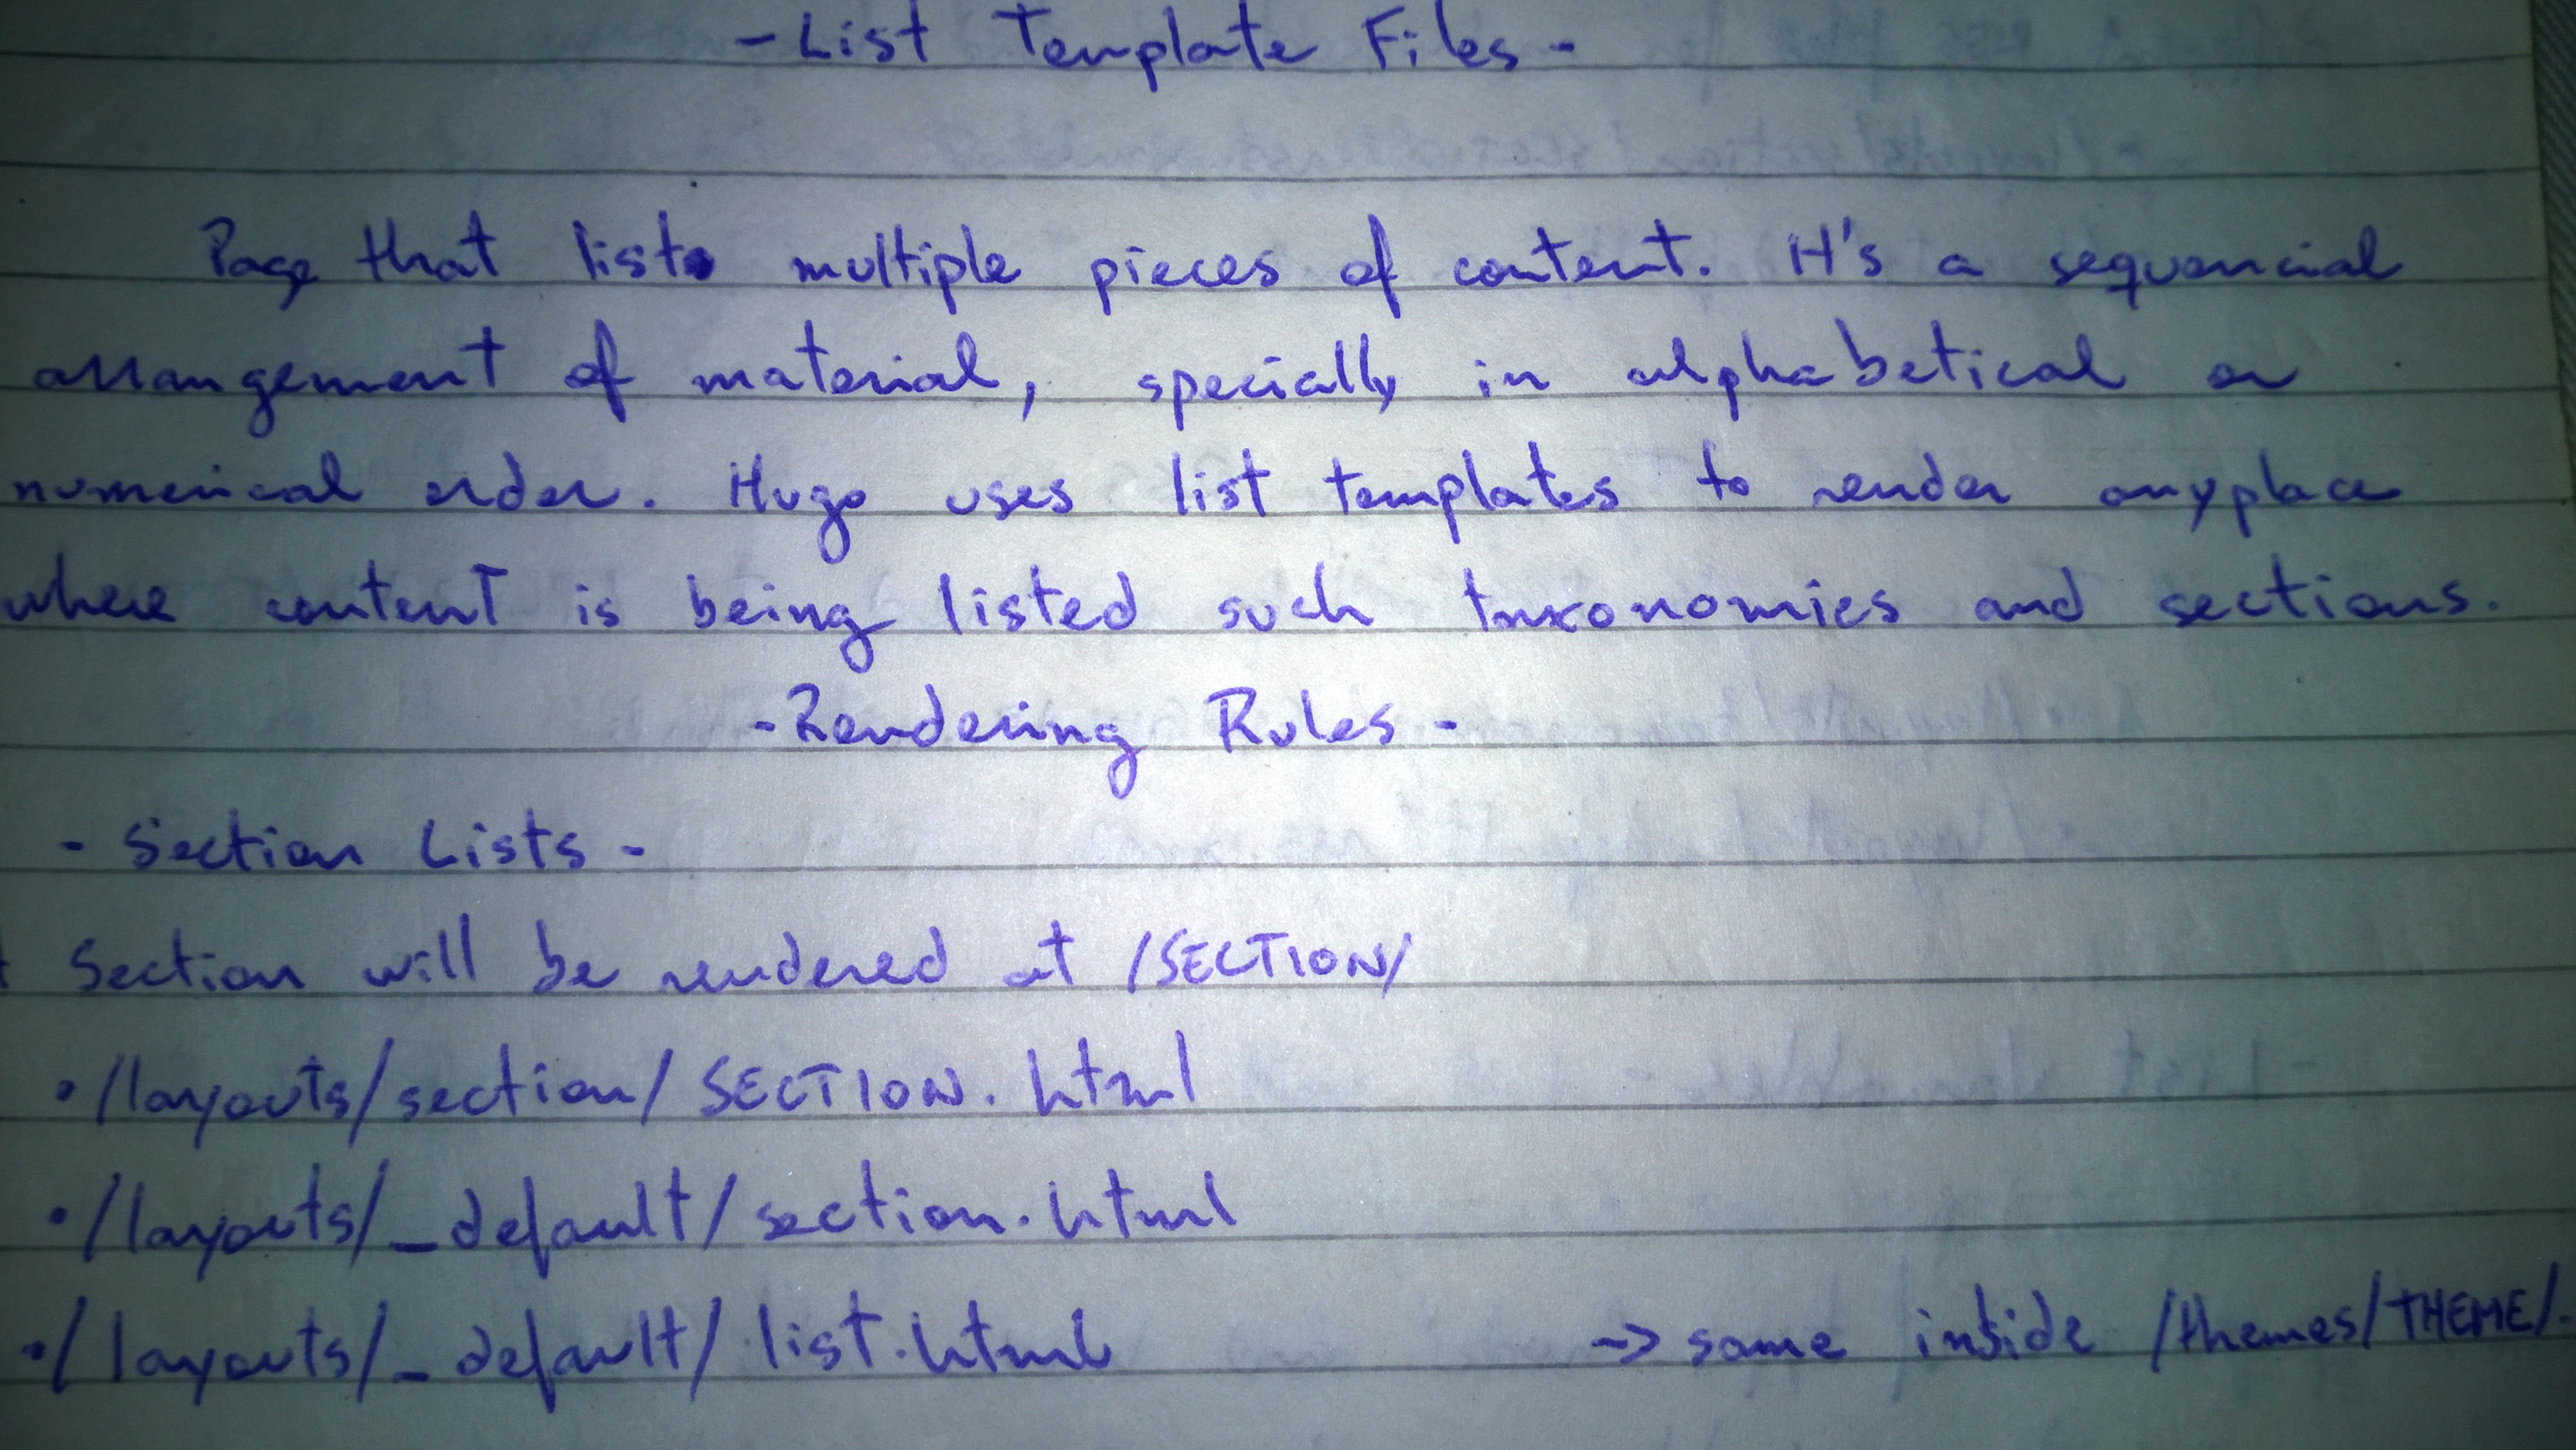 - List Template Files -
Page that lists multiple pieces of content. It's a sequencial
arrangement of material, specially in alphabetical or
numerical order. Hugo uses list templates to render anyplace
where content is being listed such taxonomies and sections.
- Rendering Rules -
- Section Lists -
Section will be rendered at /SECTION/
• /layouts/section/SECTION.html
• /layouts/_default/section.html
• /layouts/_default/list.html → same inside /themes/THEME/.